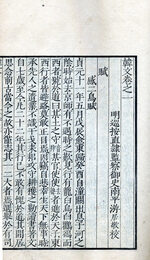 韓文卷之一
明巡按直隸監察御史南平游居敬校
賦
感二鳥賦
貞元十一年五月戊辰愈東歸癸酉自潼關出息于河之
陰時始去京師有不遇時之歎見行有籠白烏白鸜鵒而
西者號於道曰某土之守某官使使者進於天子東
西行者皆避路莫敢正目焉因竊自悲幸生天下無事時
承先人之遺業不識干戈耒耜攻守耕穫之勤讀書著文
自七歲至今凡二十二年其行己不敢有愧於道其閒居
思念前古當今之故亦僅志其一二大者焉選舉於有司